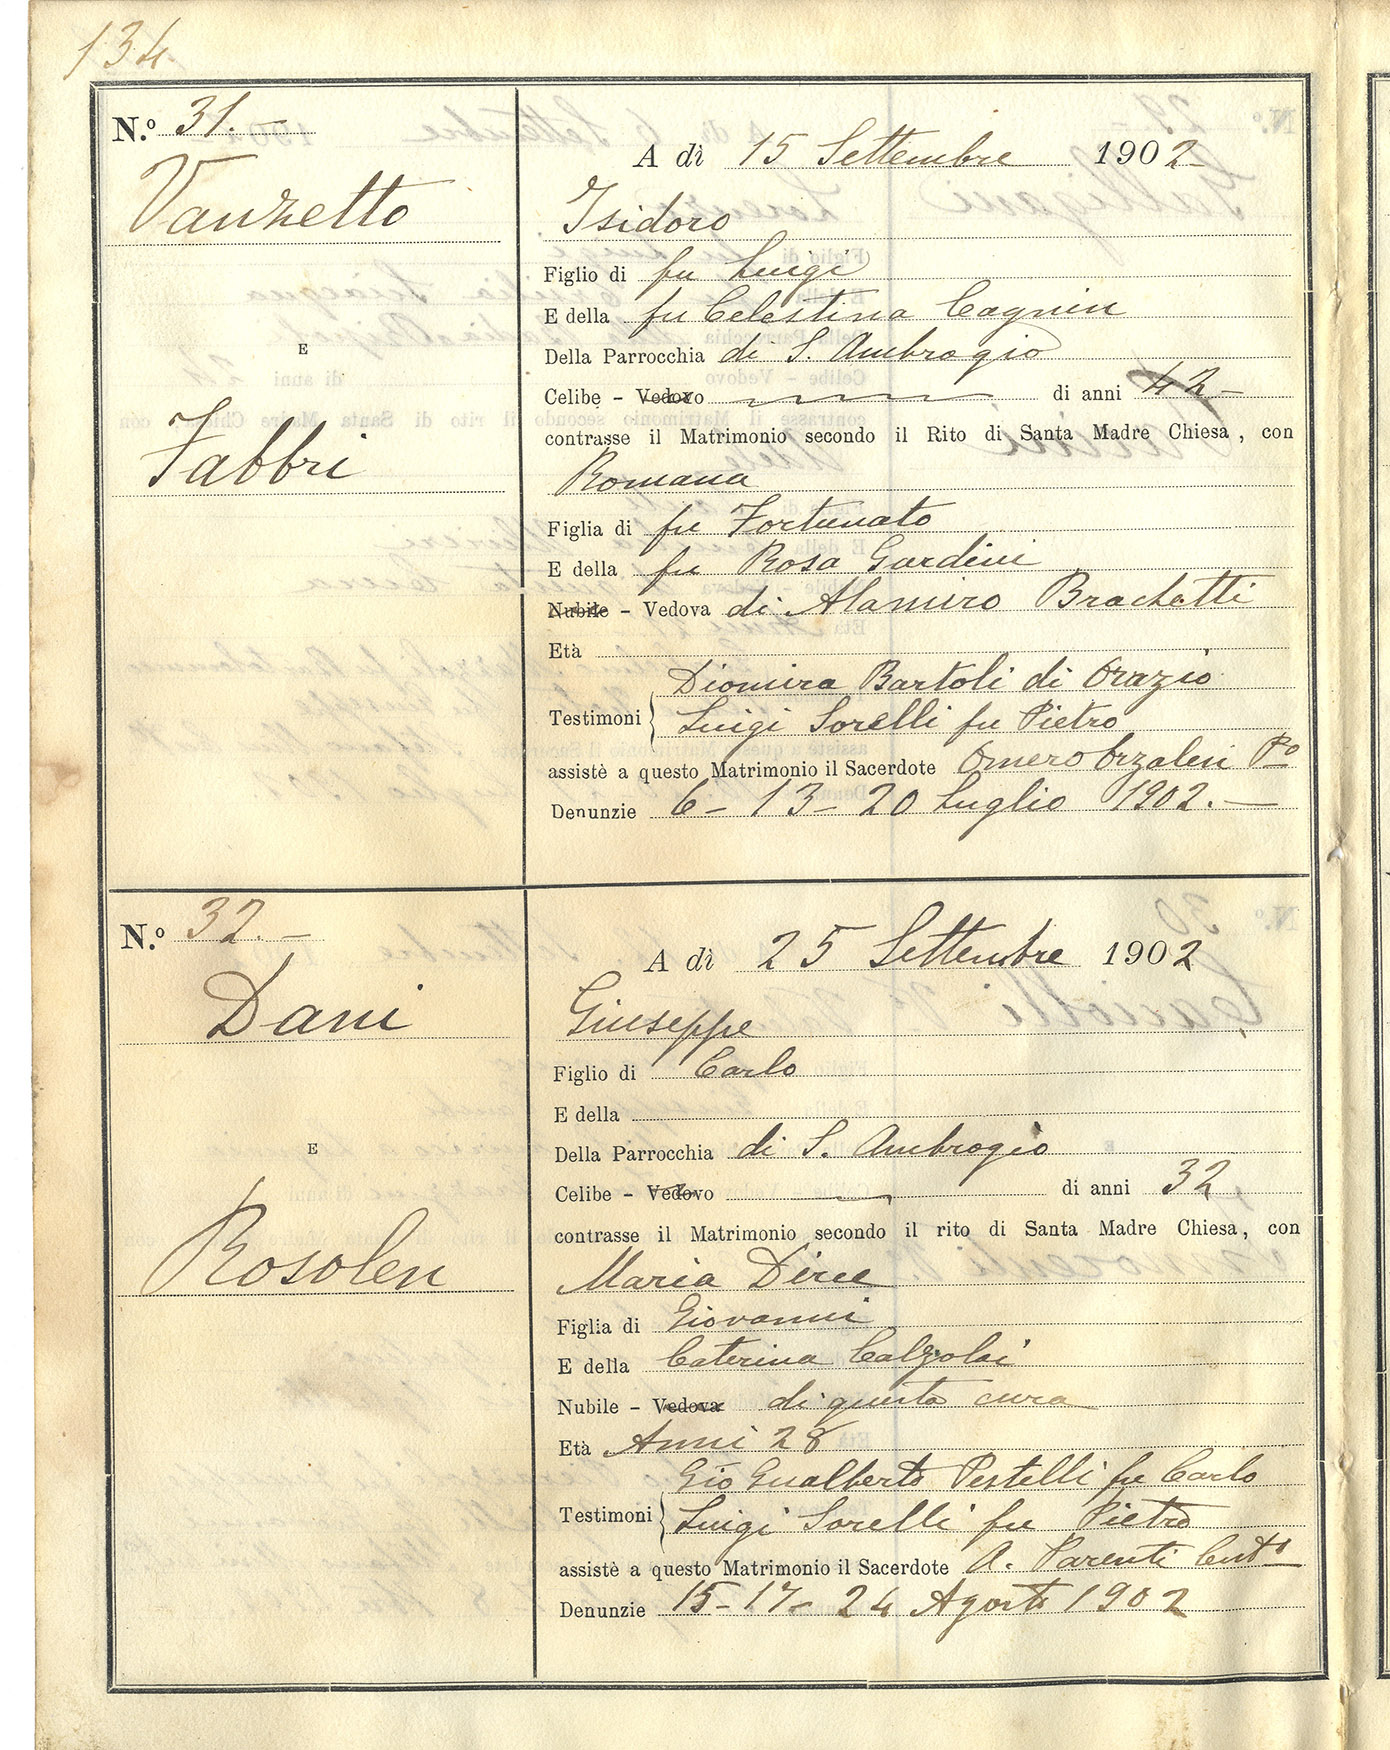 134
N.º 31. —
Vanzetto
E
Fabbri
A dì 15 Settembre 1902
Isidoro
Figlio di fu Luigi
E della fu Celestina Cagnin
Della Parrocchia di S. Ambrogio
Celibe - Vedovo di anni 42 —
contrasse il Matrimonio secondo il Rito di Santa Madre Chiesa, con
Romana
Figlia di fu Fortunato
E della fu Rosa Gardini
Nubile - Vedova di Alamiro Brachetti
Età
Diomira Bartoli di Orazio
Testimoni Luigi Sorelli fu Pietro
assistè a questo Matrimonio il Sacerdote Omero Orzalesi Po
Denunzie 6 - 13 - 20 Luglio 1902. —
N.º 32. —
Dani
E
Rosolen
A dì 25 Settembre 1902
Giuseppe
Figlio di Carlo
E della
Della Parrocchia di S. Ambrogio
Celibe - Vedovo di anni 32
contrasse il Matrimonio secondo il rito di Santa Madre Chiesa, con
Maria Dirce
Figlia di Giovanni
E della Caterina Calzolai
Nubile - Vedova di questa cura
Età Anni 28
Gio Gualberto Pestelli fu Carlo
Testimoni Luigi Sorelli fu Pietro
assistè a questo Matrimonio il Sacerdote A. Parenti
Denunzie 15 - 17 - 24 Agosto 1902